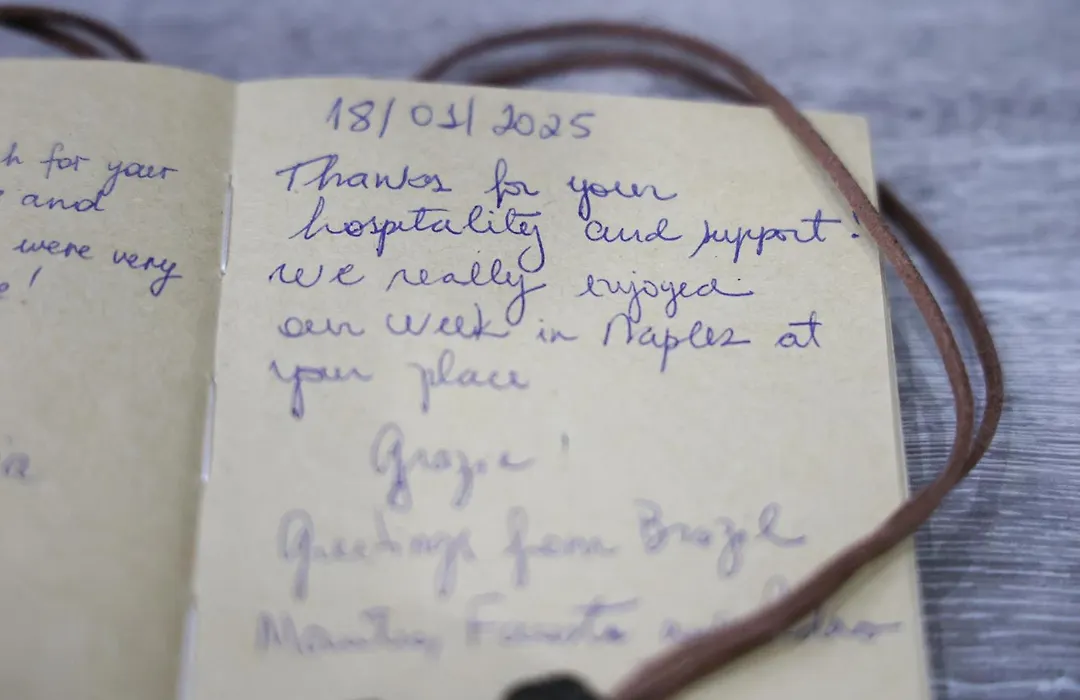 h for your
and
were very
e!
18/01/2025
Thanks for your
hospitality and support!
We really enjoyed
our week in Naples at
your place
Grazie!
Greetings from Brazil